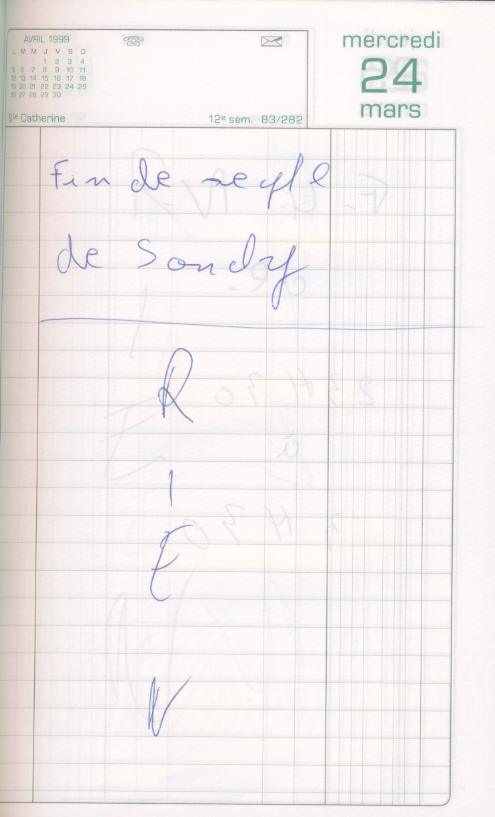 AVRIL 1999
L M M J V S D
1 2 3 4
5 6 7 8 9 10 11
12 13 14 15 16 17 18
19 20 21 22 23 24 25
26 27 28 29 30
Ste Catherine
12e sem. 83/282
mercredi
24
mars
Fin de
de Sandy
R
I
E
N